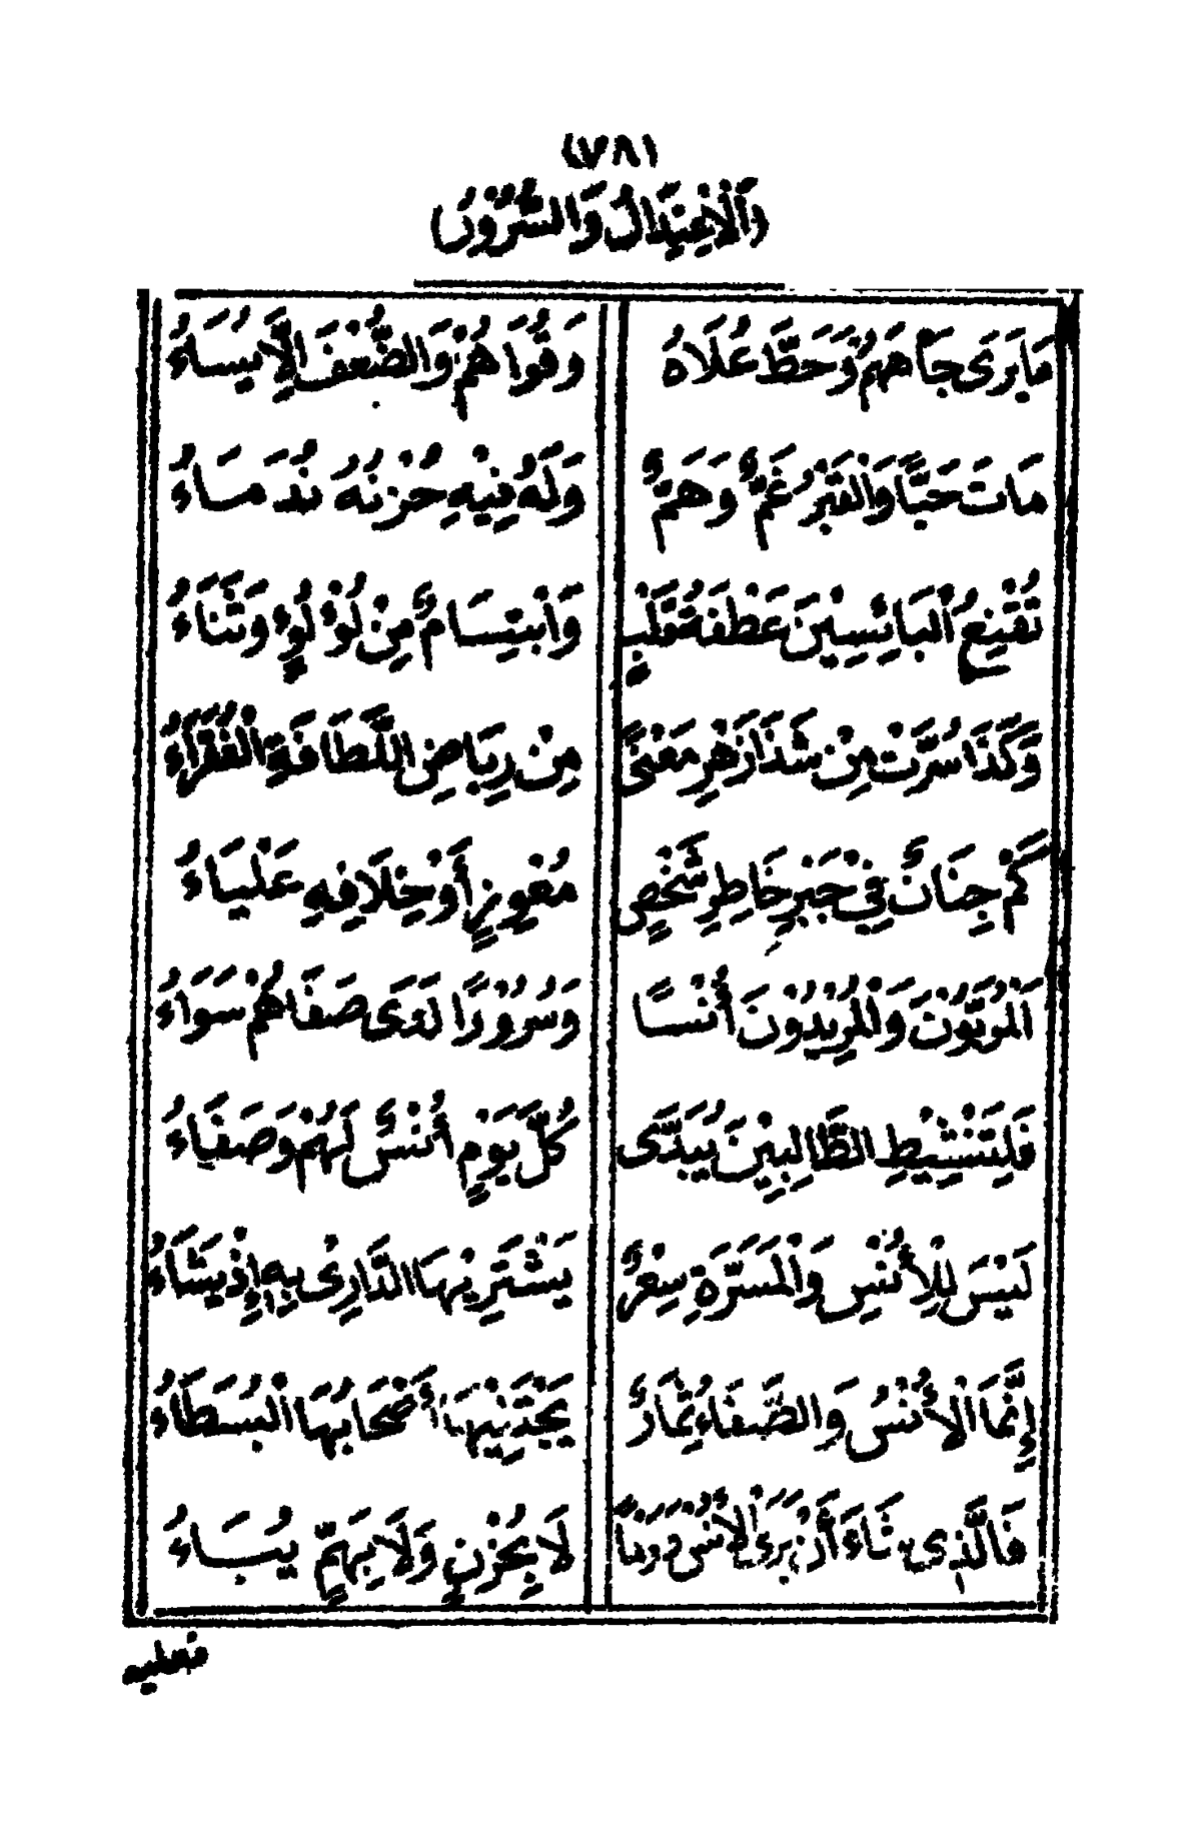 (٧٨)
(اَلْاِعْتِدَالُ وَالسُّرُوْرُ)
مَا يَرَى جَاهَهُمْ وَحَطَّ عُلَاهُ وَقُوَاهُمْ وَالضُّعْفَ اِلَّا يُسَاءُ
مَاتَ حَيًّا وَالْقَبْرُ غَمٌّ وَهَمٌّ وَلَهُ فِيْهِ حُزْنُهُ نُدَمَاءُ
تُقْنِعُ الْبَائِسِيْنَ عَطْفَةُ قَلْبٍ وَابْتِسَامٌ مِنْ لُؤْلُؤٍ وَثَنَاءُ
وَكَذَا سُرَّتْ مِنْ شَذَا زَهْرِ مَعْنًى مِنْ رِيَاضِ اللَّطَافَةِ الْفُقَرَاءُ
كَمْ جِنَانٌ فِيْ جَبْرِ خَاطِرِ شَخْصٍ مُعْوِزٍ أَوْ خِلَافِهِ عَلْيَاءُ
اَلْمُرَبُّوْنَ وَالْمُرِيْدُوْنَ أُنْسًا وَسُرُوْرًا لَدَى صَفَاهُمْ سَوَاءُ
فَلِتَنْشِيْطِ الطَّالِبِيْنَ يُبَدَّى كُلَّ يَوْمٍ أُنْسٌ لَهُمْ وَصَفَاءُ
لَيْسَ لِلْأُنْسِ وَالْمَسَرَّةِ سِعْرٌ يَشْتَرِيْهَا الدَّارِىْ بِهِ إِذْ يَشَاءُ
إِنَّمَا الْأُنْسُ وَالصَّفَاءُ ثِمَارٌ يَجْتَنِيْهَا أَصْحَابُهَا الْبُسَطَاءُ
فَالَّذِى شَاءَ أَنْ يَرَى الْأُنْسَ دَوْمًا لَا بِحُزْنٍ وَلَا بِهَمٍّ يُبَاءُ
فعليه